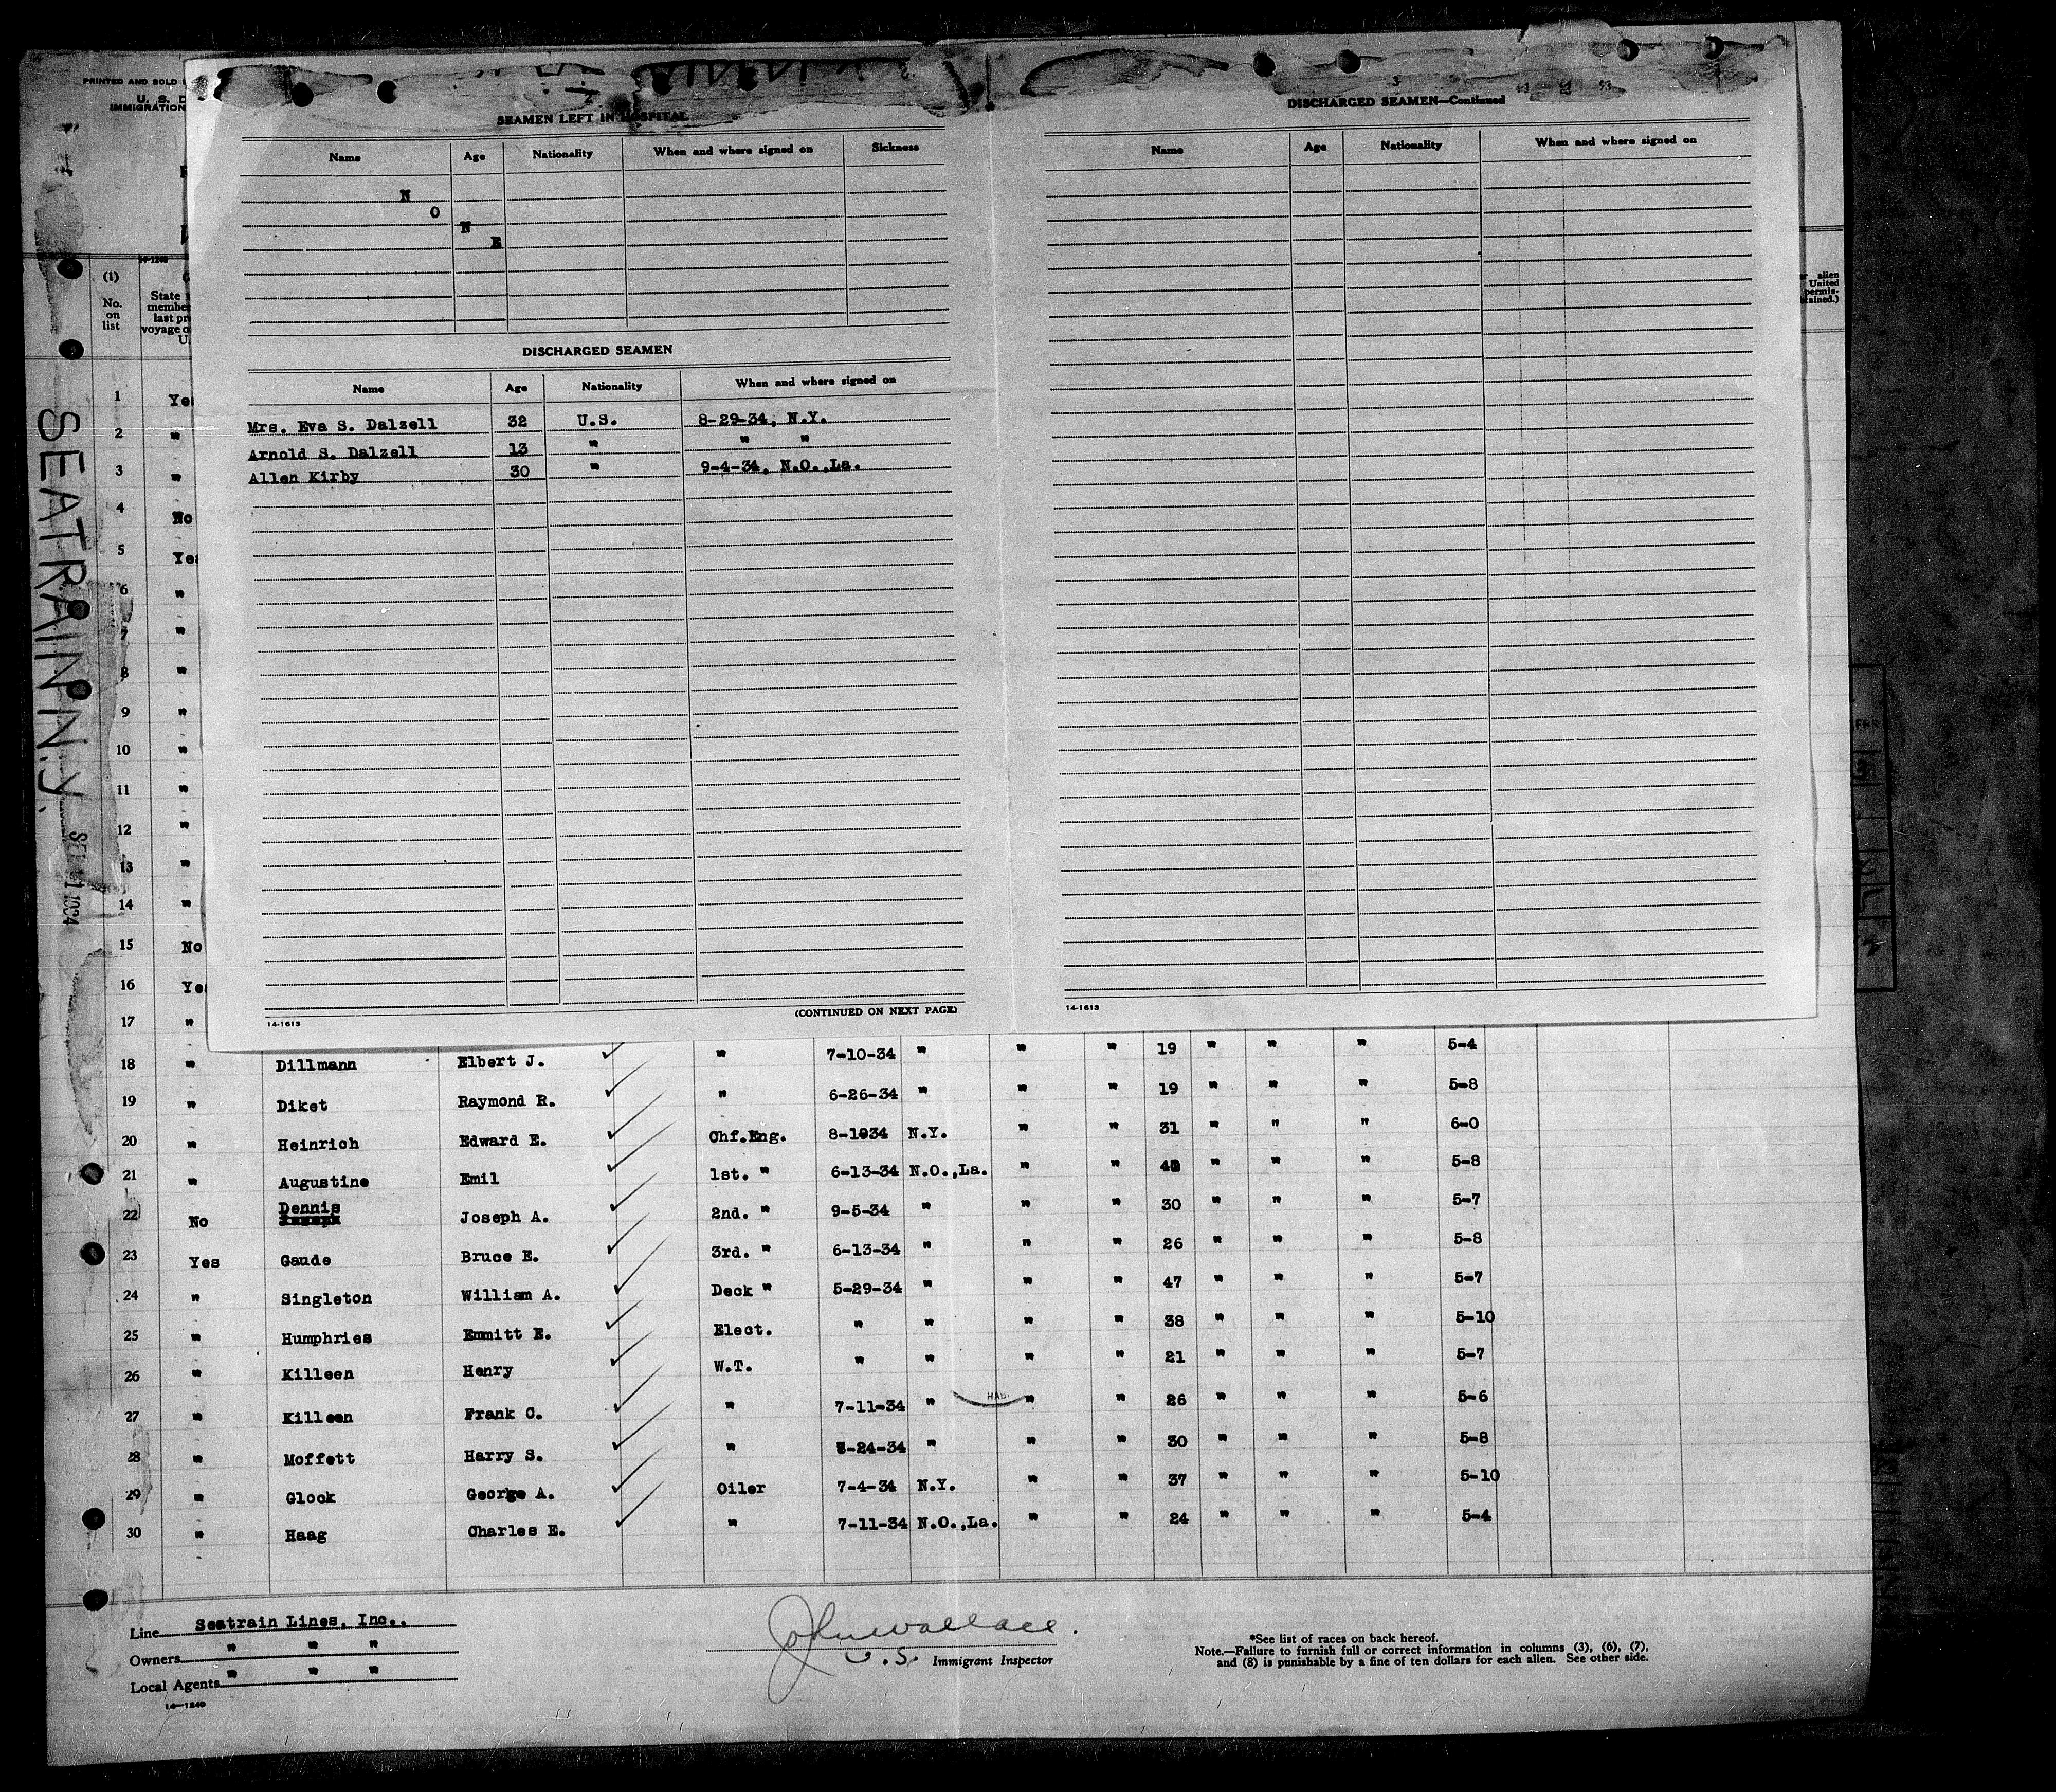 PRINTED AND SOLD
U. S. D
IMMIGRATION
SEATRAIN N.Y.
14-1240
(1)
No.
on
list
State
membe
last pr
voyage o
U.
alien
United
permis-
tained.)
SEAMEN LEFT IN HOSPITAL
Name Age Nationality When and where signed on Sickness
N
O
N
E
DISCHARGED SEAMEN
Name Age Nationality When and where signed on
Mrs. Eva S. Dalzell 32 U.S. 8-29-34, N.Y.
Arnold S. Dalzell 13 " " "
Allen Kirby 30 " 9-4-34, N.O.,La.
(CONTINUED ON NEXT PAGE)
14-1613
DISCHARGED SEAMEN—Continued
Name Age Nationality When and where signed on
14-1613
1 Yes
2 "
3 "
4 No
5 Yes
6 "
7 "
8 "
9 "
10 "
11 "
12 "
13 "
14 "
15 No
16 Yes
17 "
18 " Dillmann Elbert J. " 7-10-34 " " " 19 " " " 5-4
19 " Diket Raymond R. " 6-26-34 " " " 19 " " " 5-8
20 " Heinrich Edward E. Chf.Eng. 8-1034 N.Y. " " 31 " " " 6-0
21 " Augustine Emil 1st. " 6-13-34 N.O.,La. " " " " " 5-8
22 No Dennis Joseph A. 2nd. " 9-5-34 " " " 30 " " " 5-7
23 Yes Gaude Bruce E. 3rd. " 6-13-34 " " " 26 " " " 5-8
24 " Singleton William A. Deck " 5-29-34 " " " 47 " " " 5-7
25 " Humphries Emmitt E. Elect. " " " " 38 " " " 5-10
26 " Killeen Henry W.T. " " " " 21 " " " 5-7
27 " Killeen Frank C. " 7-11-34 " " " 26 " " " 5-6
28 " Moffett Harry S. " -24-34 " " " 30 " " " 5-8
29 " Glock George A. Oiler 7-4-34 N.Y. " " 37 " " " 5-10
30 " Haag Charles E. " 7-11-34 N.O.,La. " " 24 " " " 5-4
Line Seatrain Lines, Inc.,
Owners " " "
Local Agents " " "
14-1240
John Wallace.
U.S. Immigrant Inspector
*See list of races on back hereof.
Note.—Failure to furnish full or correct information in columns (3), (6), (7),
and (8) is punishable by a fine of ten dollars for each alien. See other side.